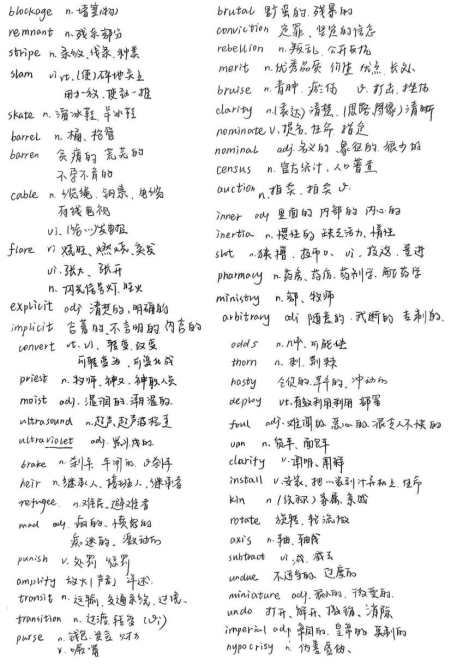 blockage n. 堵塞(物)
remnant n. 残余部分
stripe n. 条纹、线条、种类
slam vi vt. (使)砰地关上
用力一放, 使劲一推
skate n. 滑冰鞋, 旱冰鞋
barrel n. 桶、枪管
barren 贫瘠的 荒芜的
不孕不育的
cable n. 缆绳、钢索、电缆
有线电视
vi. 发电报
flare vi 烧旺、燃烧、突发
vi. 张大、张开
n. 闪光信号灯, 怒火
explicit adj 清楚的, 明确的
implicit 含蓄的, 不言明的 内含的
convert vt. vi. 转变, 改变
可转变为、可变换成
priest n. 牧师、神父、神职人员
moist adj. 湿润的, 潮湿的
ultrasound n. 超声, 超声波
ultraviolet adj. 紫外线的
brake n. 刹车 车闸 v. 刹车
heir n. 继承人、接班人、继承者
refugee n. 难民, 避难者
mad adj. 疯的、愤怒的
痴迷的、激动的
punish v. 处罚 惩罚
amplify 放大(声音) 详述
transit n. 运输, 交通系统, 过境、
transition n. 过渡, 转变 (vi)
purse n. 钱包, 资金 财力
v. 噘嘴
brutal 野蛮的, 残暴的
conviction 定罪、坚定的信念
rebellion n. 叛乱, 公开反抗
merit n. 优秀品质 价值 优点, 长处
bruise n. 青肿, 瘀伤 v. 打击, 挫伤
clarity n. (表达)清楚, (思路图像)清晰
nominate v. 提名, 任命 指定
nominal adj. 名义的 象征的 很少的
census n. 官方统计, 人口普查
auction n. 拍卖, 拍卖 v.
inner adj 里面的 内部的 内心的
inertia n. 惯性的 缺乏活力, 惰性
slot n. 狭槽、投币口、vi. 投放, 置进
pharmacy n. 药房, 药店, 药剂学, 制药学
ministry n. 部、牧师
arbitrary adj 随意的, 武断的 专制的
odds n. 几率, 可能性
thorn n. 刺, 荆棘
hasty 仓促的, 草率的, 冲动的
deploy vt. 有效利用 部署
foul adj. 难闻的 恶心的 很令人不快的
van n. 货车, 面包车
clarify v. 阐明、阐释
install v. 安装,
kin n. (统称)家属, 亲戚
rotate 旋转, 轮流做
axis n. 轴, 轴线
subtract vt. 减, 减去
undue 不适当的, 过度的
miniature adj. 很小的, 微型的
undo 打开, 解开, 撤销, 消除
imperial adj 帝国的, 皇帝的 英制的
hypocrisy n. 伪善 虚伪、